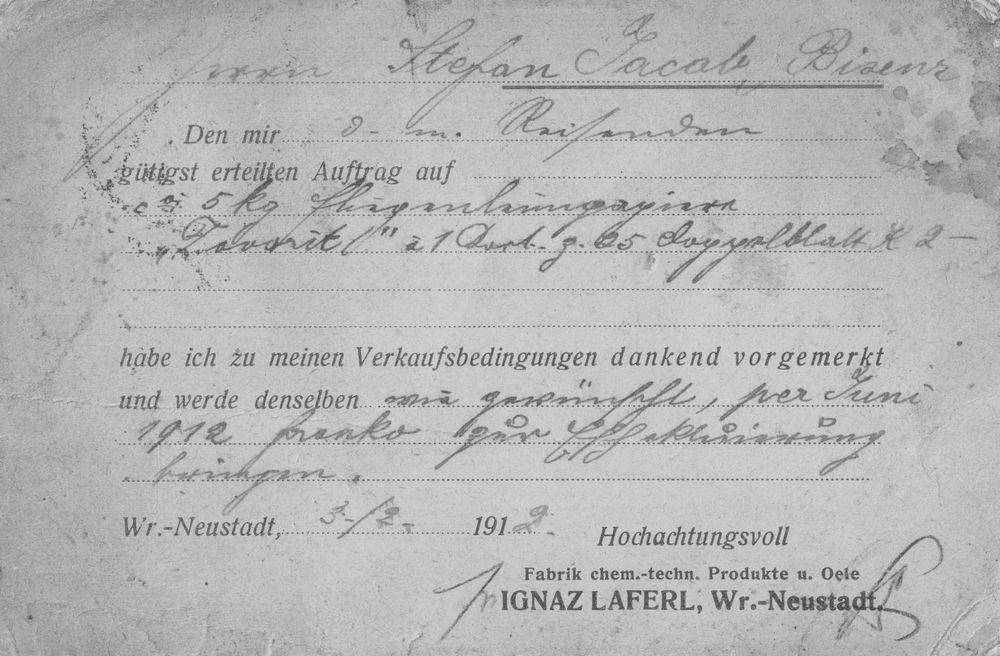 Herrn Stefan Jacob Bisenz
Den mir d. m. Reisenden
gütigst erteilten Auftrag auf
5 kg Fliegenleimpapiere
"Favorit" à 1 Cart. z. 25 Doppelblatt K 2-
habe ich zu meinen Verkaufsbedingungen dankend vorgemerkt
und werde denselben wie gewünscht, per Juni
1912 franko zur Effektuierung
bringen.
Wr.-Neustadt, 3./2. 1912.
Hochachtungsvoll
Fabrik chem.-techn. Produkte u. Oele
IGNAZ LAFERL, Wr.-Neustadt.